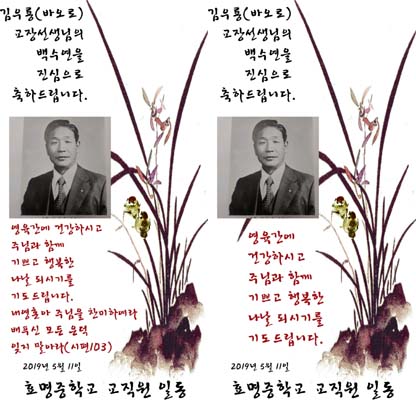 김우룡(바오로)
교장선생님의
백수연을
진심으로
축하드립니다.
영육간에 건강하시고
주님과 함께
기쁘고 행복한
나날 되시기를
기도드립니다.
내영혼아 주님을 찬미하여라
베푸신 모든 은덕
잊지 말아라(시편103)
2019년 5월 11일
효명중학교 교직원 일동
김우룡(바오로)
교장선생님의
백수연을
진심으로
축하드립니다.
영육간에
건강하시고
주님과 함께
기쁘고 행복한
나날 되시기를
기도드립니다.
2019년 5월 11일
효명중학교 교직원 일동